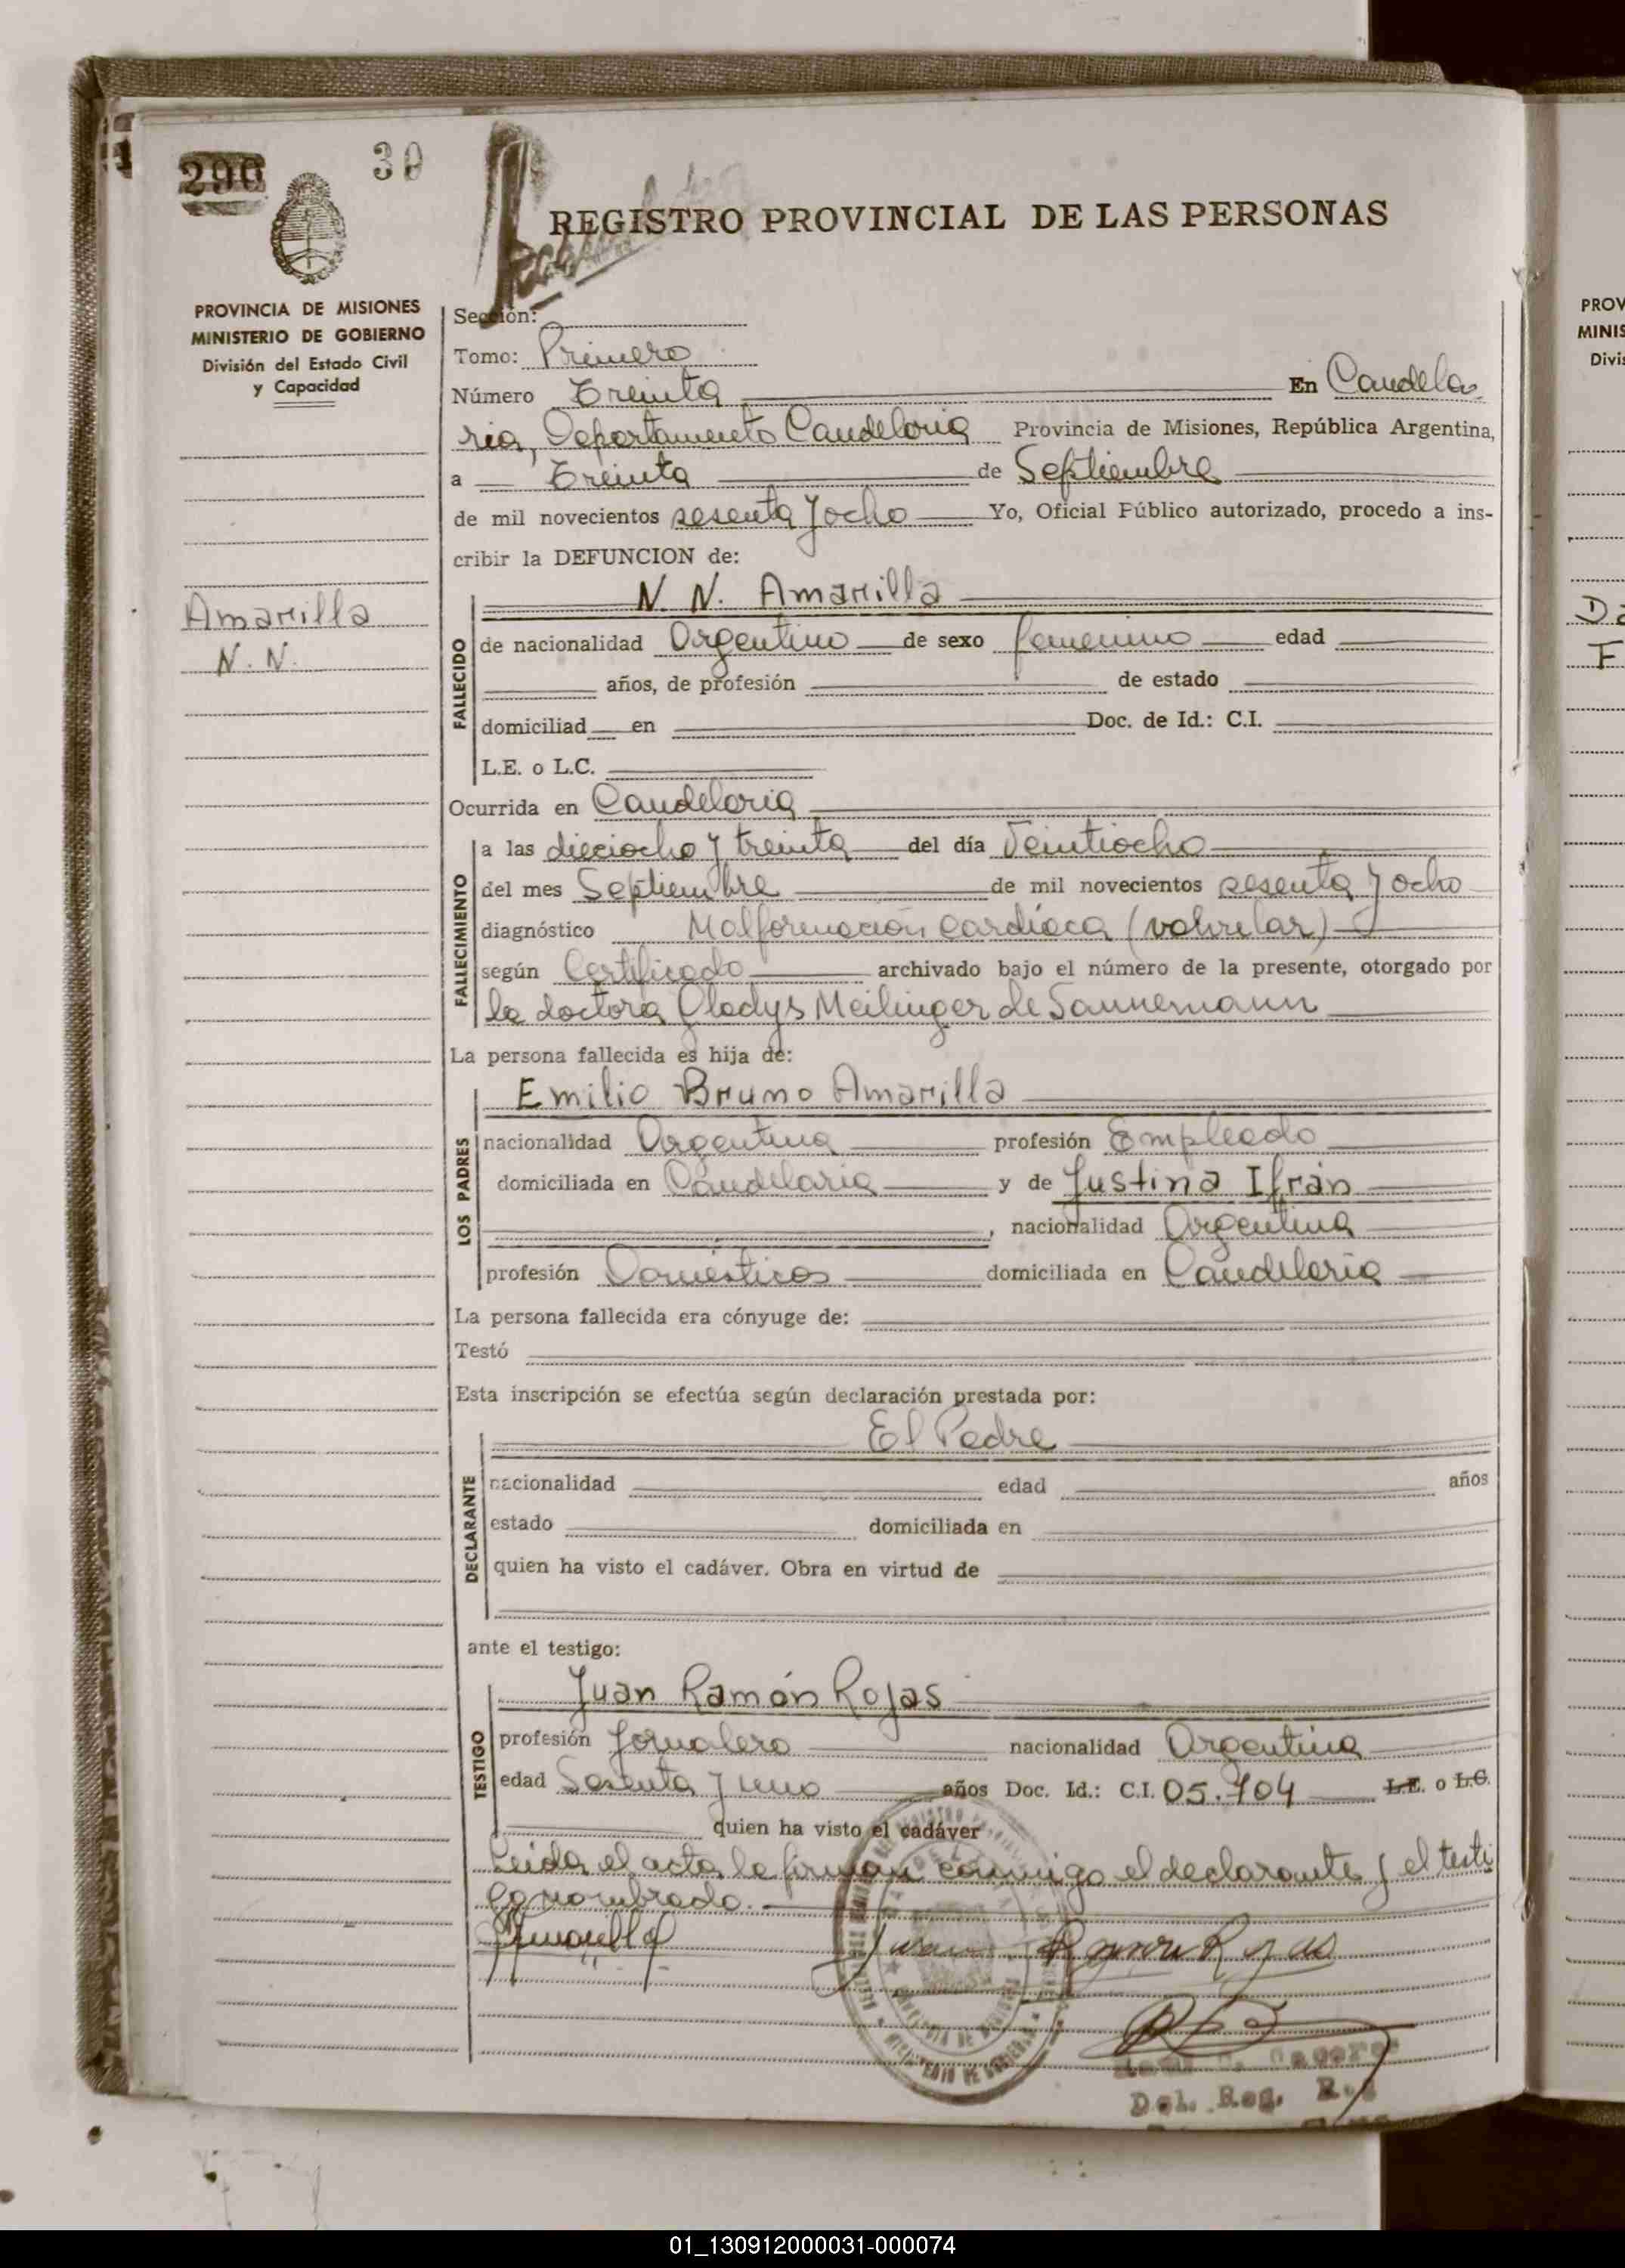 290
30
REGISTRO PROVINCIAL DE LAS PERSONAS
PROVINCIA DE MISIONES
MINISTERIO DE GOBIERNO
División del Estado Civil
y Capacidad
Sección:
Tomo: Primero
Número Treinta En Candela
ria, Departamento Candelaria Provincia de Misiones, República Argentina,
a Treinta de Septiembre
de mil novecientos sesenta y ocho Yo, Oficial Público autorizado, procedo a ins-
cribir la DEFUNCION de:
Amarilla
N. N.
FALLECIDO
N. N. Amarilla
de nacionalidad Argentino de sexo femenino edad
años, de profesión de estado
domiciliad en Doc. de Id.: C.I.
L.E. o L.C.
Ocurrida en Candelaria
FALLECIMIENTO
a las dieciocho y treinta del día Veintiocho
del mes Septiembre de mil novecientos sesenta y ocho
diagnóstico Malformación cardíaca (valvular)
según Certificado archivado bajo el número de la presente, otorgado por
la doctora Gladys Meilinger de Sannemann
La persona fallecida es hija de:
LOS PADRES
Emilio Bruno Amarilla
nacionalidad Argentina profesión Empleado
domiciliada en Candelaria y de Justina Ifrán
, nacionalidad Argentina
profesión Domésticos domiciliada en Candelaria
La persona fallecida era cónyuge de:
Testó
Esta inscripción se efectúa según declaración prestada por:
DECLARANTE
El Padre
nacionalidad edad años
estado domiciliada en
quien ha visto el cadáver. Obra en virtud de
ante el testigo:
TESTIGO
Juan Ramón Rojas
profesión Jornalero nacionalidad Argentina
edad Sesenta y uno años Doc. Id.: C.I. 05.704 L.E. o L.C.
quien ha visto el cadáver
Leída el acta la firman conmigo el declarante y el testi
go nombrado.
Amarilla
Juan Ramon Rojas
Del. Reg.
PROV
MINIS
Divi
01_130912000031-000074